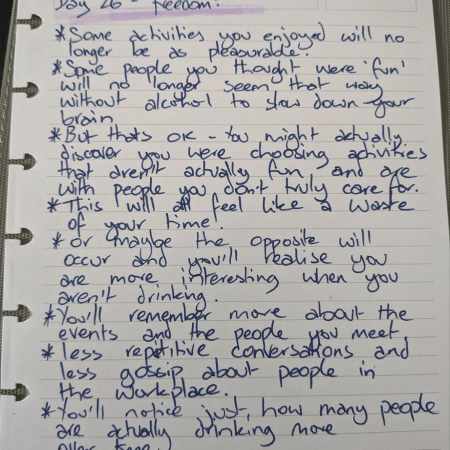 Day 26 - freedom!
*Some activities you enjoyed will no
longer be as pleasurable.
*Some people you thought were 'fun'
will no longer seem that way
without alcohol to slow down your
brain.
*But thats OK - You might actually
discover you were choosing activities
that aren't actually fun and are
with people you don't truly care for.
*This will feel like a waste
of your time.
*Or maybe the opposite will
occur and you'll realise you
are more interesting when you
aren't drinking.
*You'll remember more about the
events and the people you meet
*less repetitive conversations and
less gossip about people in
the workplace.
*You'll notice just how many people
are actually drinking more